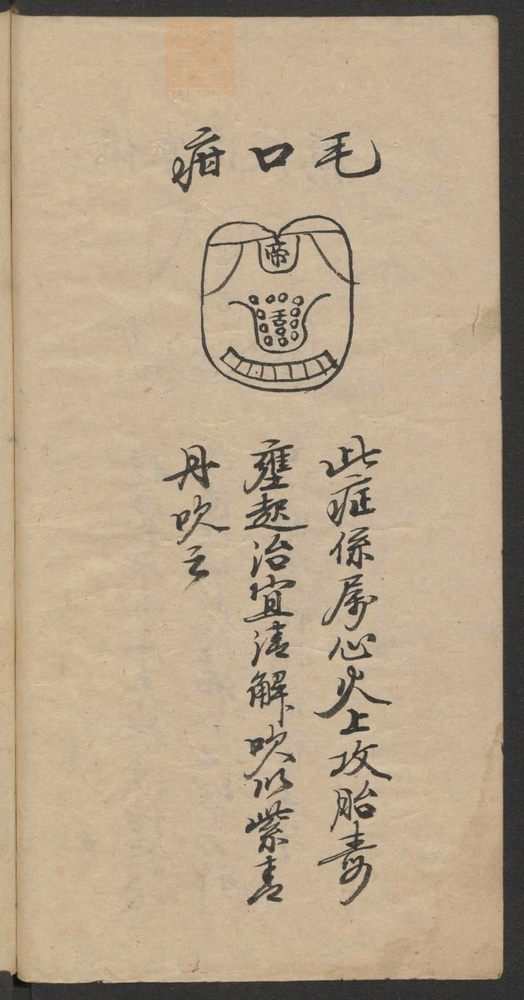 毛口疳
帝
舌
此症係属心火上攻胎毒
壅起治宜清解吹以紫青
丹吹之